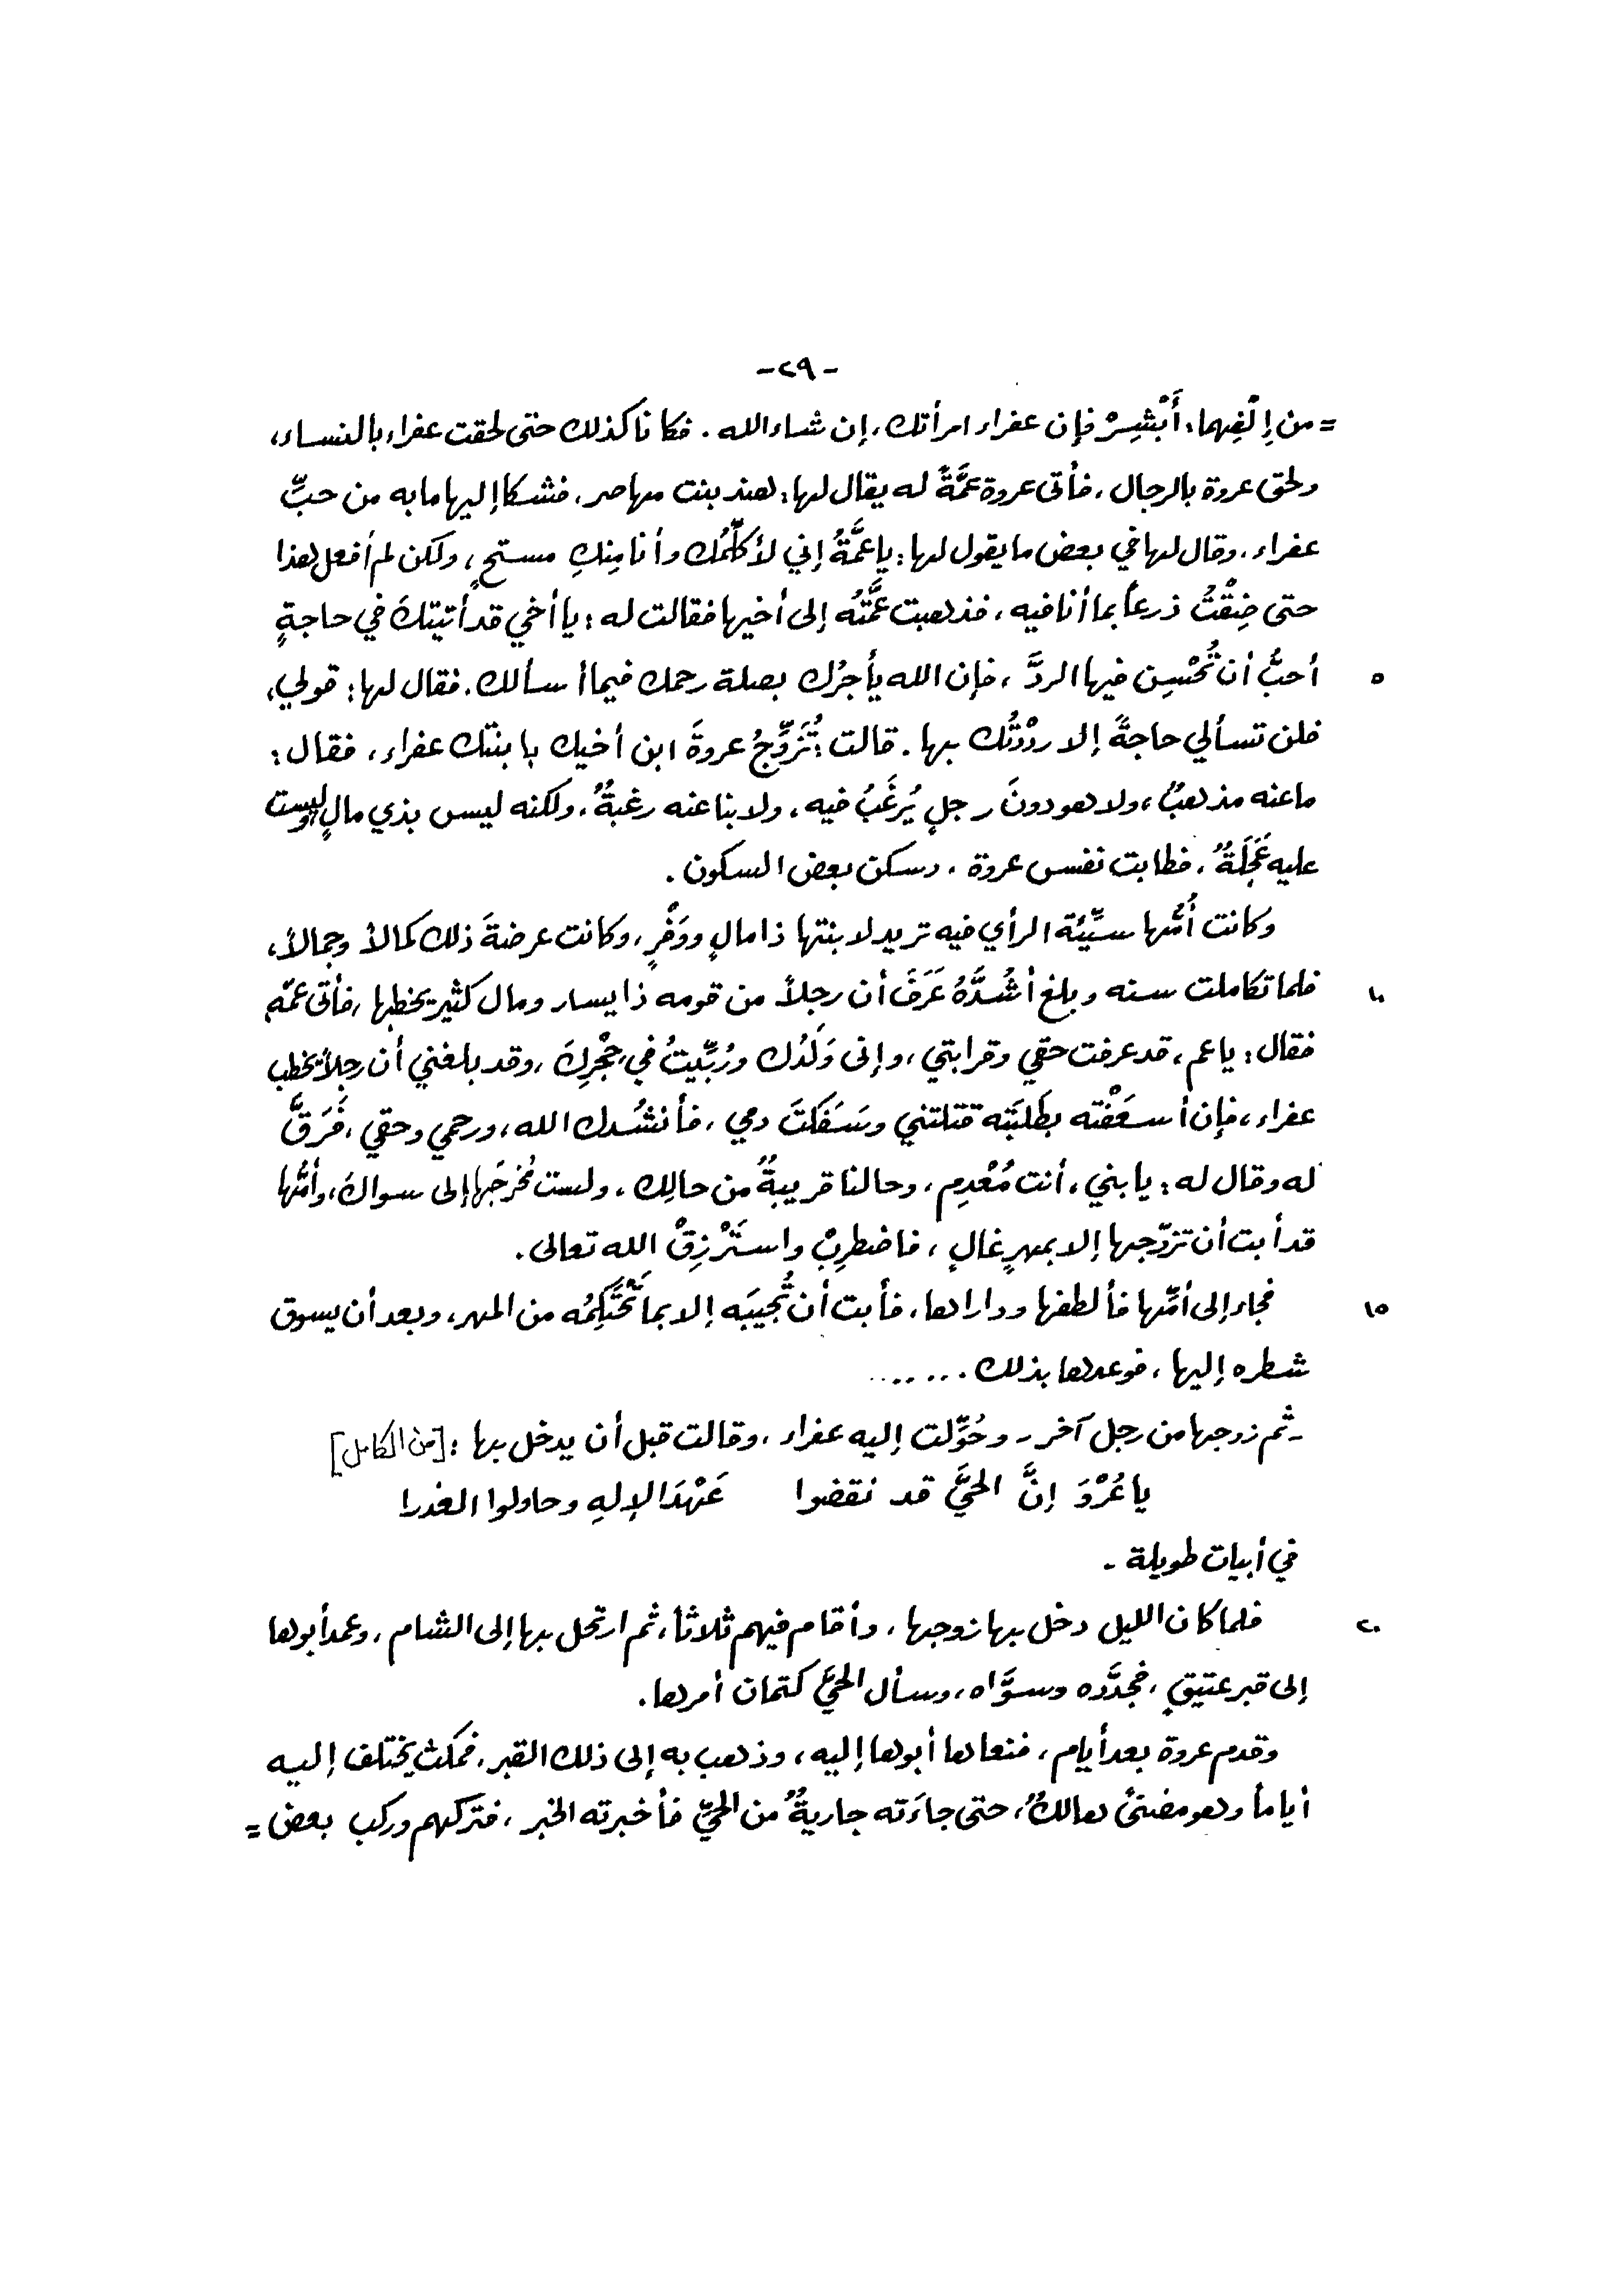 -٢٩-
= من إِلْفِهما، أَبْشِرْ فإن عفراء امرأتك، إن شاء الله. فكانا كذلك حتى لحقت عفراء بالنساء،
ولحق عروة بالرجال، فأتى عروة عمَّةً له يقال لها: هند بنت مهاصر، فشكا إليها ما به من حبِّ
عفراء، وقال لها في بعض ما يقول لها: يا عمَّةُ إني لأُكلِّمُك وأنا مِنكِ مستحٍ، ولكن لم أفعل هذا
حتى ضِقْتُ ذرعاً بما أنا فيه، فذهبت عمَّتُه إلى أخيها فقالت له: يا أخي قد أتيتكَ في حاجةٍ
٥ أحبُّ أن تُحْسِن فيها الردَّ، فإن الله يأجرُك بصلة رحمك فيما أسألك. فقال لها: قولي،
فلن تسألي حاجةً إلا رددْتُك بها. قالت: تُزَوِّجُ عروةَ ابن أخيك بابنتك عفراء، فقال:
ما عنه مذهبٌ، ولا هو دونَ رجلٍ يُرغَبُ فيه، ولا بنا عنه رغبةٌ، ولكنه ليس بذي مالٍ وليست
عليه عَجَلَةٌ، فطابت نفس عروة، وسكن بعض السكون.
وكانت أمُّها سيِّئة الرأي فيه تريد لابنتها ذا مالٍ ووَفْرٍ، وكانت عرضةَ ذلك كمالاً وجمالاً،
١٠ فلما تكاملت سنه وبلغ أشُدَّهُ عَرَفَ أن رجلاً من قومه ذا يسار ومال كثير يخطبها، فأتى عمّه
فقال: يا عم، قد عرفت حقي وقرابتي، وإنى وَلَدُك ورُبِّيتُ في حِجْرِكَ، وقد بلغني أن رجلاً يخطب
عفراء، فإن أسعَفْته بطَلبَتِه قتلتني وسَفَكتَ دمي، فأنشُدك الله، ورحمي وحقي، فَرَقَّ
له وقال له: يا بني، أنت مُعْدِم، وحالنا قريبةٌ من حالك، ولست مُخرجَها إلى سواكَ، وأمُّها
قد أبت أن تزوّجها إلا بمهرٍ غالٍ، فاضطرِبْ واستَرْزِقْ الله تعالى.
١٥ فجاء إلى أمِّها فألطفها وداراها، فأبت أن تُجيبَه إلا بما تَحْتَكِمُه من المهر، وبعد أن يسوق
شطره إليها، فوعدها بذلك.......
- ثم زوجها من رجل آخر - وحُوِّلت إليه عفراء، وقالت قبل أن يدخل بها: [من الكامل]
يا عُرْوَ إنَّ الحيَّ قد نقضوا عَهْدَ الإلهِ وحاولوا الغدرا
في أبيات طويلة -
٢٠ فلما كان الليل دخل بها زوجها، وأقام فيهم ثلاثاً، ثم ارتحل بها إلى الشام، وعمد أبوها
إلى قبر عتيقٍ، فجدَّده وسوَّاه، وسأل الحيَّ كتمان أمرها.
وقدم عروة بعد أيام، فنعاها أبوها إليه، وذهب به إلى ذلك القبر. فمكث يختلف إليه
أياماً وهو مضنىً هالكٌ، حتى جاءَته جاريةٌ من الحيِّ فأخبرته الخبر، فتركهم وركب بعض =